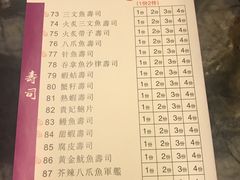 (1個2件)
73 三文魚壽司 1份 2份 3份 4份
74 火炙三文魚壽司 1份 2份 3份 4份
75 火炙帶子壽司 1份 2份 3份 4份
76 八爪魚壽司 1份 2份 3份 4份
77 針魚壽司 1份 2份 3份 4份
78 吞拿魚沙律壽司 1份 2份 3份 4份
79 蝦蛄壽司 1份 2份 3份 4份
80 蟹籽壽司 1份 2份 3份 4份
81 熟蝦壽司 1份 2份 3份 4份
82 貴妃鮑片 1份 2份 3份 4份
83 鰻魚壽司 1份 2份 3份 4份
84 甜蝦壽司 1份 2份 3份 4份
85 腐皮壽司 1份 2份 3份 4份
86 黃金魷魚壽司 1份 2份 3份 4份
87 芥辣八爪魚軍艦 1份 2份 3份 4份
壽司